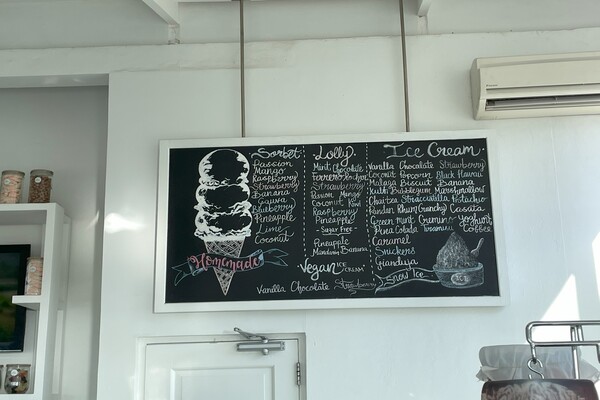 Sorbet
Passion
Mango
Raspberry
Strawberry
Banana
Guava
Blueberry
Pineapple
Lime
Coconut
Homemade
Lolly
Mint Chocolate
Strawberry
Passion Mango
Coconut Kiwi
Raspberry
Pineapple
Sugar Free
Pineapple
Mandarin Banana
Vegan ICE CREAM
Vanilla Chocolate Strawberry
Ice Cream
Vanilla Chocolate Strawberry
Coconut Popcorn Black Hawaii
Malaga Biscuit Banana
Bubblegum Marshmallow
Stracciatella Pistachio
Rhum Crunchy Cassata
Green mint Yoghurt
Pina Colada Tiramisu Coffee
Caramel
Snickers
Gianduja
Snow Ice
ICE